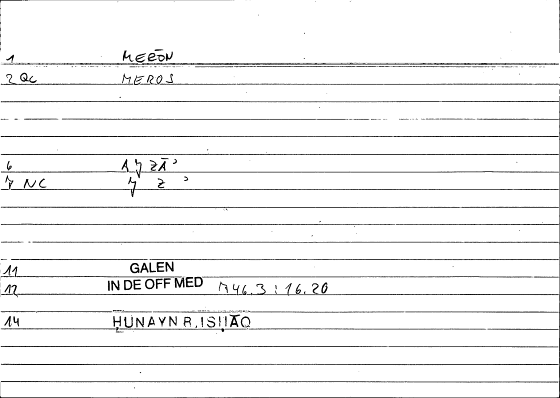 1 MERŌN
2 QC MEROS
6 AǦZĀʾ
7 NC Ǧ Z ʾ
11 GALEN
12 IN DE OFF MED 746.3 : 16.20
14 ḤUNAYN B.ISḤĀQ